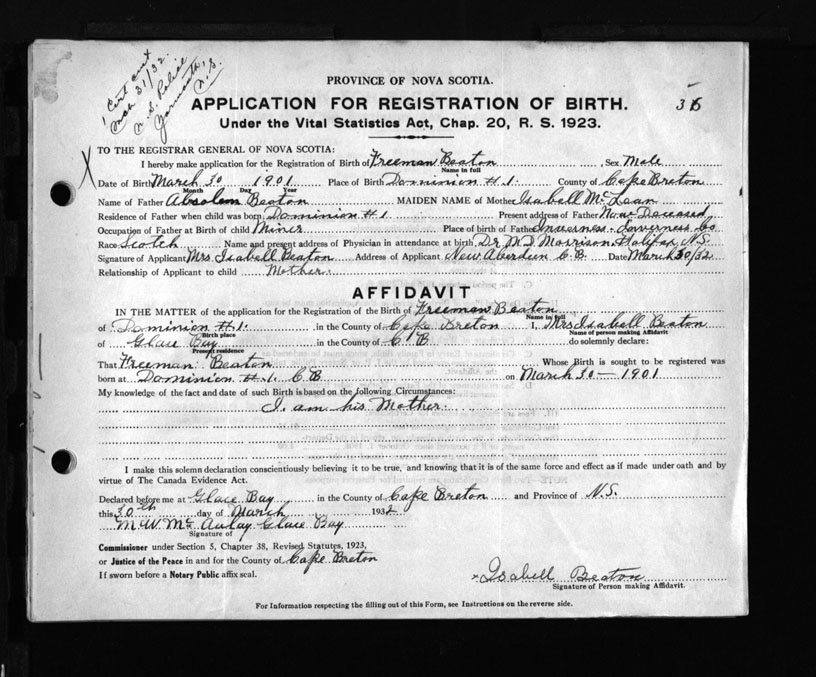 1 Cert out
Mch 31/32.
N. S. Police
Yarmouth,
N.S.
PROVINCE OF NOVA SCOTIA.
APPLICATION FOR REGISTRATION OF BIRTH.
Under the Vital Statistics Act, Chap. 20, R. S. 1923.
TO THE REGISTRAR GENERAL OF NOVA SCOTIA:
I hereby make application for the Registration of Birth of Freeman Beaton Sex Male
Name in full
Date of Birth March 30 1901 Place of Birth Dominion # 1. County of Cape Breton
Month Day Year
Name of Father Absolem Beaton MAIDEN NAME of Mother Isabell McLean
Residence of Father when child was born Dominion # 1 Present address of Father Now Deceased
Occupation of Father at Birth of child Miner Place of birth of Father Inverness - Inverness Co
Race Scotch Name and present address of Physician in attendance at birth Dr. M. D. Morrison Halifax N.S.
Signature of Applicant Mrs Isabell Beaton Address of Applicant New Aberdeen C.B. Date March 30/32
Relationship of Applicant to child Mother.
AFFIDAVIT
IN THE MATTER of the application for the Registration of the Birth of Freeman Beaton
Name in full
of Dominion # 1. in the County of Cape Breton I, Mrs Isabell Beaton
Birth place Name of person making Affidavit
of Glace Bay in the County of C B do solemnly declare:
Present residence
That Freeman Beaton Whose Birth is sought to be registered was
born at Dominion # 1. C B on March 30 - 1901
My knowledge of the fact and date of such Birth is based on the following Circumstances:
I am his Mother.
I make this solemn declaration conscientiously believing it to be true, and knowing that it is of the same force and effect as if made under oath and by
virtue of The Canada Evidence Act.
Declared before me at Glace Bay in the County of Cape Breton and Province of N.S.
this 30th day of March 1932
M.W. McAulay Glace Bay
Signature of
Commissioner under Section 5, Chapter 38, Revised Statutes, 1923,
or Justice of the Peace in and for the County of Cape Breton
If sworn before a Notary Public affix seal.
x Isabell Beaton
Signature of Person making Affidavit.
For Information respecting the filling out of this Form, see Instructions on the reverse side.